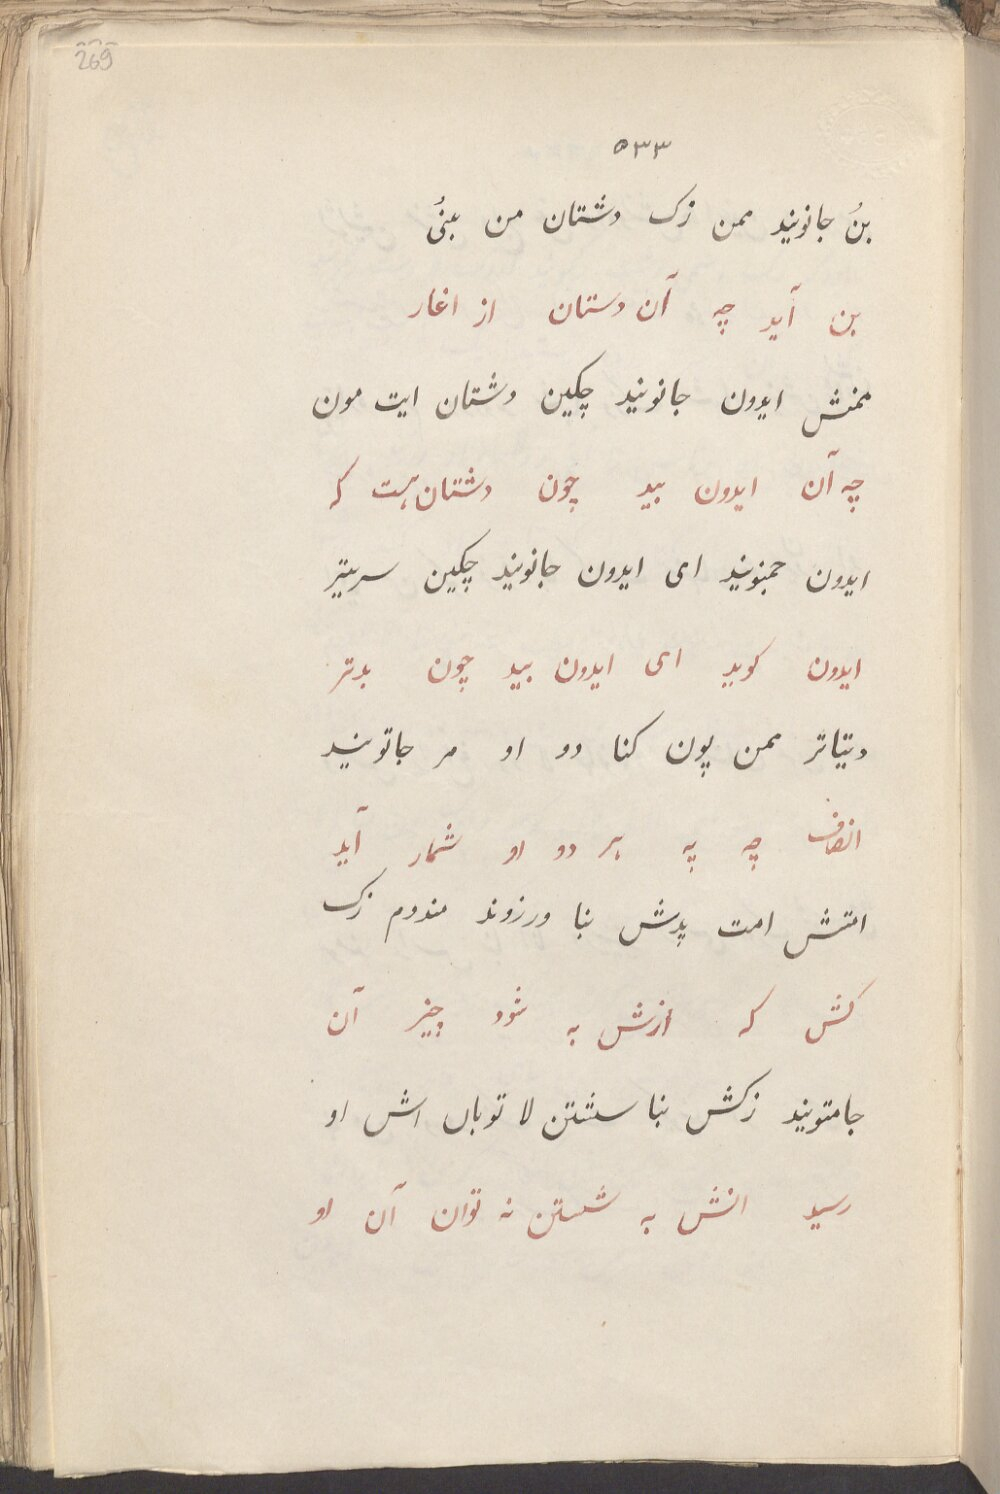 269
٥٣٣
بنُ جانونید ممن زک دشتان من ببنیُ
بن آید چه آن دستان از اغار
ممنش ایدون جانونید چکین دشتان ایت مون
چه آن ایدون بید چون دشتان هست که
ایدون جمنونید ای ایدون جانونید چکین سریتر
ایدون کوید ای ایدون بید چون بدتر
دتیاتر ممن پون کنا دو او مر جاتونید
انصاف چه په هر دو او شمار آید
امتش امت پدش بنا ورزوند مندوم زک
کش که ازش به شود چیز آن
جامتونید زکش بنا سشتن لا توباں اش او
رسید انش به شستن نه توان آن او